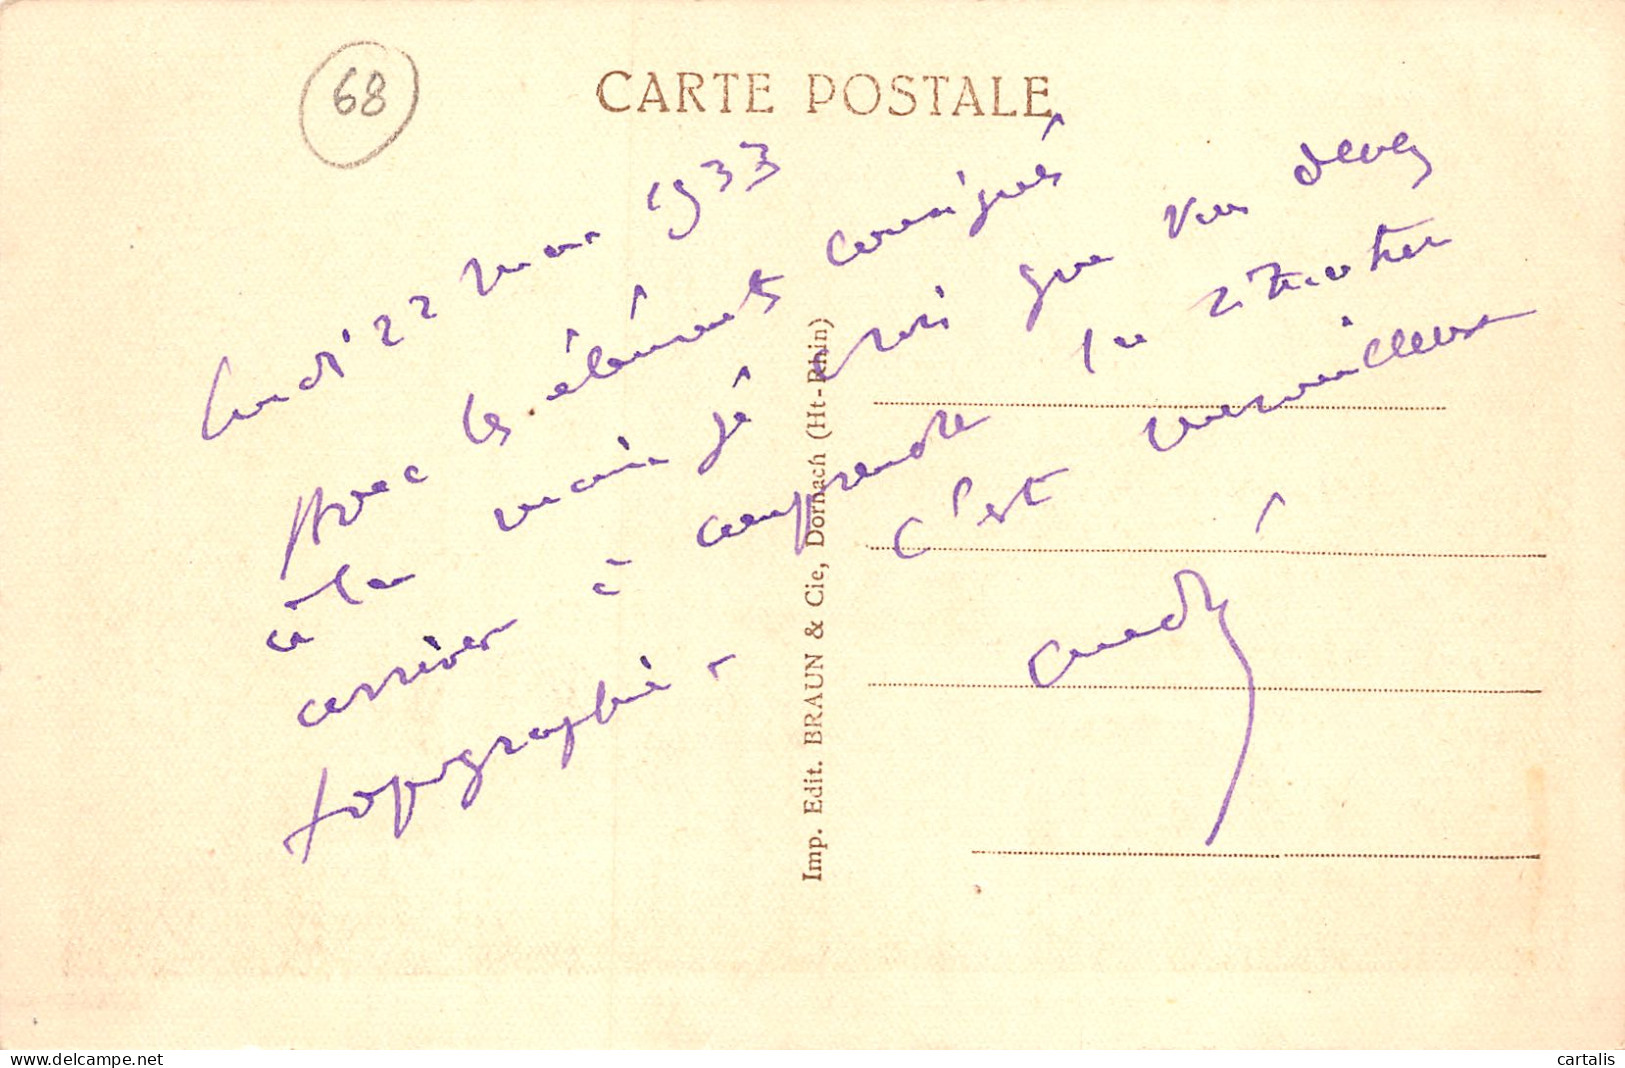 68
CARTE POSTALE
Lundi 22 mai 1933
Avec les éléments conjugués
à la main je crois que vous devez
arriver à comprendre la situation
topographie - c'est merveilleux !
André
Imp. Edit. BRAUN & Cie, Dornach (Ht-Rhin)
www.delcampe.net
cartalis